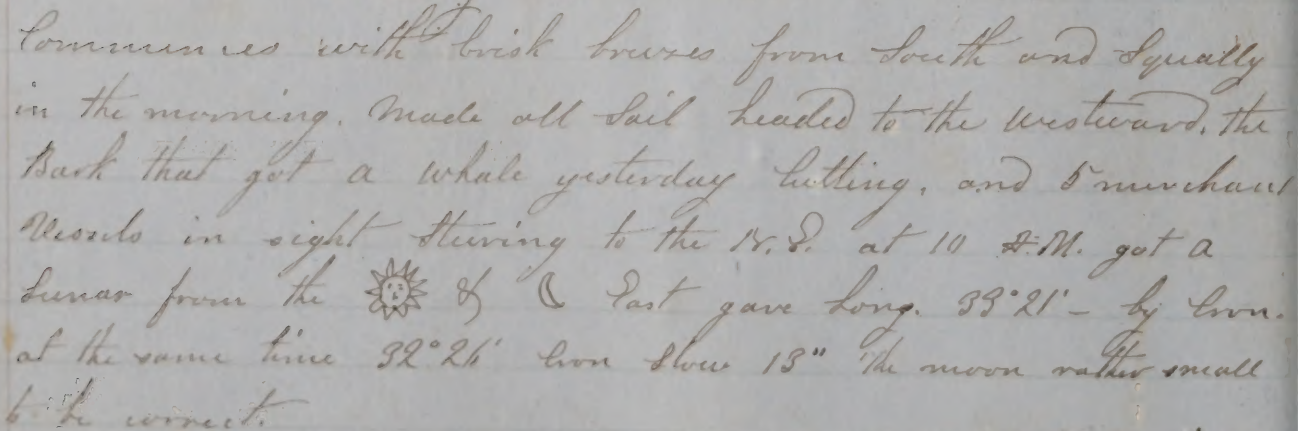 Commences with brisk breezes from South and Squally
in the morning. Made all Sail headed to the Westward, the
Bark that got a whale yesterday Cutting, and 5 merchant
Vessels in sight Steering to the N.E. at 10 A.M. got a
Lunar from the ☀ & ☾ East gave Long. 33°21' - by Cron.
at the same time 32°26' Cron Slow 13" the moon rather small
to be correct.